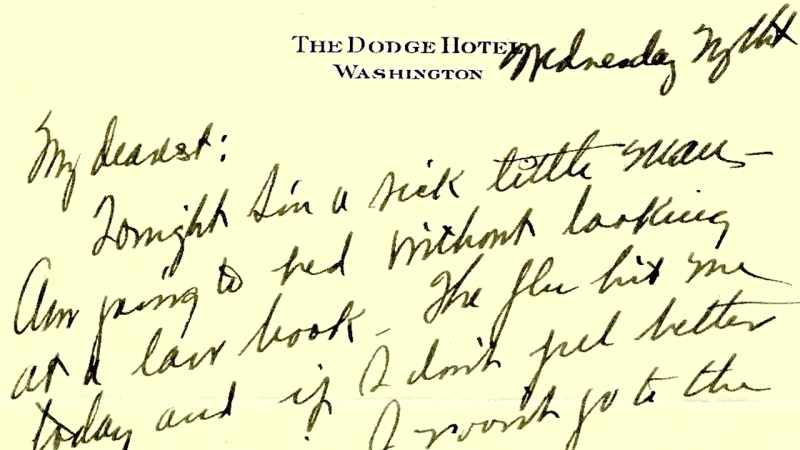 THE DODGE HOTEL
WASHINGTON
Wednesday Night
My dearest:
Tonight I'm a sick little man—
Am going to bed without looking
at a law book – The flu hit me
today and if I don't feel better
I won't go to the